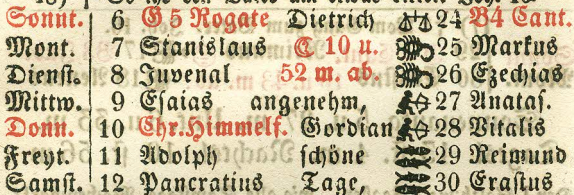 Sonnt. 6 G 5 Rogate Dietrich 24 B4 Cant.
Mont. 7 Stanislaus C 10 u. 25 Markus
Dienst. 8 Juvenal 52 m. ab. 26 Ezechias
Mittw. 9 Esaias angenehm, 27 Anatas.
Donn. 10 Chr. Himmelf. Gordian 28 Vitalis
Freyt. 11 Adolph schöne 29 Reimund
Samst. 12 Pancratius Tage, 30 Erastus